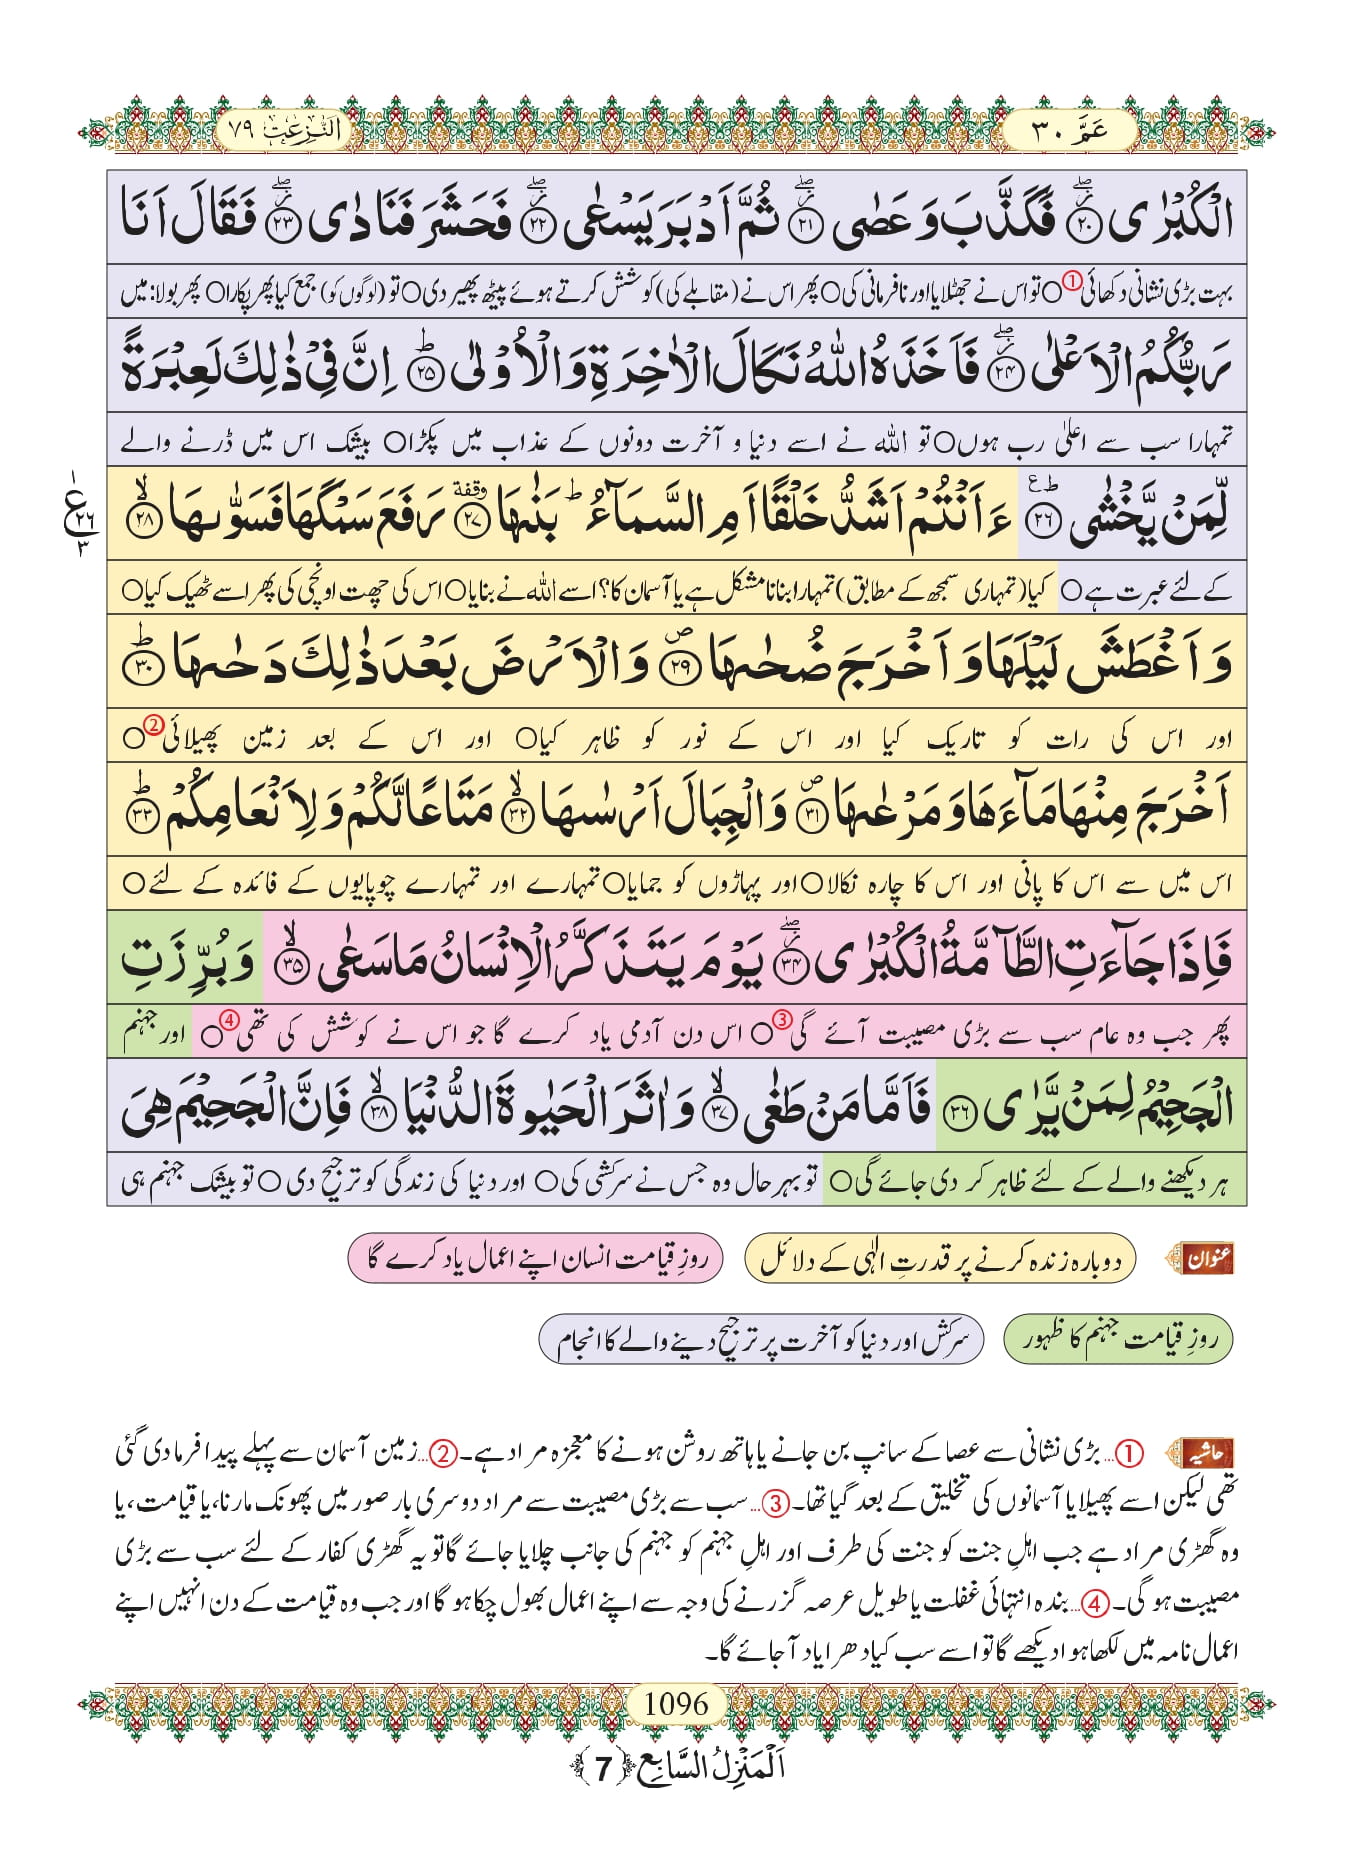 عَمَّ ۳۰
اَلنّٰزِعٰت ۷۹
الْكُبْرٰى ﴿۲۰﴾ فَكَذَّبَ وَ عَصٰى ﴿۲۱﴾ ثُمَّ اَدْبَرَ یَسْعٰى ﴿۲۲﴾ فَحَشَرَ فَنَادٰى ﴿۲۳﴾ فَقَالَ اَنَا
بہت بڑی نشانی دکھائی① ○ تو اس نے جھٹلایا اور نافرمانی کی ○ پھر اس نے (مقابلے کی) کوشش کرتے ہوئے پیٹھ پھیر دی ○ تو (لوگوں کو) جمع کیا پھر پکارا ○ پھر بولا: میں
رَبُّكُمُ الْاَعْلٰى ﴿۲۴﴾ فَاَخَذَهُ اللّٰهُ نَكَالَ الْاٰخِرَةِ وَ الْاُوْلٰى ﴿۲۵﴾ اِنَّ فِیْ ذٰلِكَ لَعِبْرَةً
تمہارا سب سے اعلیٰ رب ہوں ○ تو اللہ نے اسے دنیا و آخرت دونوں کے عذاب میں پکڑا ○ بیشک اس میں ڈرنے والے
لِّمَنْ یَّخْشٰى ﴿۲۶﴾ ءَاَنْتُمْ اَشَدُّ خَلْقًا اَمِ السَّمَآءُ ؕ بَنٰىهَا ﴿۲۷﴾ رَفَعَ سَمْكَهَا فَسَوّٰىهَا ﴿۲۸﴾
ع ۱ ۲۶ ۳
کے لئے عبرت ہے ○ کیا (تمہاری سمجھ کے مطابق) تمہارا بنانا مشکل ہے یا آسمان کا؟ اسے اللہ نے بنایا ○ اس کی چھت اونچی کی پھر اسے ٹھیک کیا ○
وَ اَغْطَشَ لَیْلَهَا وَ اَخْرَجَ ضُحٰىهَا ﴿۲۹﴾ وَ الْاَرْضَ بَعْدَ ذٰلِكَ دَحٰىهَا ﴿۳۰﴾
اور اس کی رات کو تاریک کیا اور اس کے نور کو ظاہر کیا ○ اور اس کے بعد زمین پھیلائی② ○
اَخْرَجَ مِنْهَا مَآءَهَا وَ مَرْعٰىهَا ﴿۳۱﴾ وَ الْجِبَالَ اَرْسٰىهَا ﴿۳۲﴾ مَتَاعًا لَّكُمْ وَ لِاَنْعَامِكُمْ ﴿۳۳﴾
اس میں سے اس کا پانی اور اس کا چارہ نکالا ○ اور پہاڑوں کو جمایا ○ تمہارے اور تمہارے چوپایوں کے فائدہ کے لئے ○
فَاِذَا جَآءَتِ الطَّآمَّةُ الْكُبْرٰى ﴿۳۴﴾ یَوْمَ یَتَذَكَّرُ الْاِنْسَانُ مَا سَعٰى ﴿۳۵﴾ وَ بُرِّزَتِ
پھر جب وہ عام سب سے بڑی مصیبت آئے گی③ ○ اس دن آدمی یاد کرے گا جو اس نے کوشش کی تھی④ ○ اور جہنم
الْجَحِیْمُ لِمَنْ یَّرٰى ﴿۳۶﴾ فَاَمَّا مَنْ طَغٰى ﴿۳۷﴾ وَ اٰثَرَ الْحَیٰوةَ الدُّنْیَا ﴿۳۸﴾ فَاِنَّ الْجَحِیْمَ هِیَ
ہر دیکھنے والے کے لئے ظاہر کر دی جائے گی ○ تو بہر حال وہ جس نے سرکشی کی ○ اور دنیا کی زندگی کو ترجیح دی ○ تو بیشک جہنم ہی
عنوان دوبارہ زندہ کرنے پر قدرتِ الٰہی کے دلائل روزِ قیامت انسان اپنے اعمال یاد کرے گا
روزِ قیامت جہنم کا ظہور سرکش اور دنیا کو آخرت پر ترجیح دینے والے کا انجام
حاشیہ ①... بڑی نشانی سے عصا کے سانپ بن جانے یا ہاتھ روشن ہونے کا معجزہ مراد ہے۔ ②... زمین آسمان سے پہلے پیدا فرما دی گئی
تھی لیکن اسے پھیلایا آسمانوں کی تخلیق کے بعد گیا تھا۔ ③... سب سے بڑی مصیبت سے مراد دوسری بار صور میں پھونک مارنا، یا قیامت، یا
وہ گھڑی مراد ہے جب اہلِ جنت کو جنت کی طرف اور اہلِ جہنم کو جہنم کی جانب چلایا جائے گا تو یہ گھڑی کفار کے لئے سب سے بڑی
مصیبت ہو گی۔ ④... بندہ انتہائی غفلت یا طویل عرصہ گزرنے کی وجہ سے اپنے اعمال بھول چکا ہو گا اور جب وہ قیامت کے دن انہیں اپنے
اعمال نامہ میں لکھا ہوا دیکھے گا تو اسے سب کیا دھرا یاد آ جائے گا۔
1096
اَلْمَنْزِلُ السَّابِع ﴿7﴾